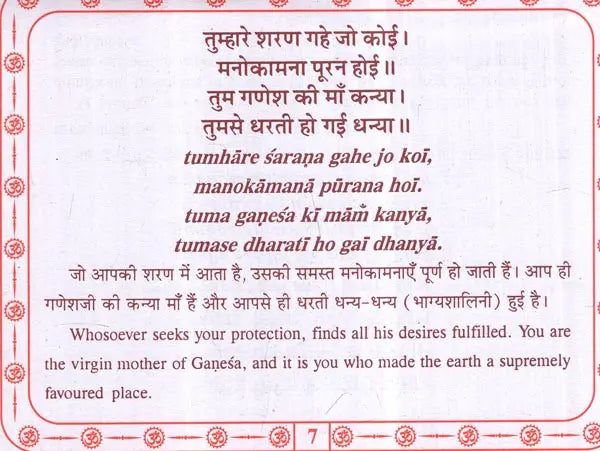 तुम्हारे शरण गहे जो कोई।
मनोकामना पूरन होई॥
तुम गणेश की माँ कन्या।
तुमसे धरती हो गई धन्या॥
tumhāre śaraṇa gahe jo koī,
manokāmanā pūrana hoī.
tuma gaṇeśa kī mām̐ kanyā,
tumase dharatī ho gaī dhanyā.
जो आपकी शरण में आता है, उसकी समस्त मनोकामनाएँ पूर्ण हो जाती हैं। आप ही
गणेशजी की कन्या माँ हैं और आपसे ही धरती धन्य-धन्य (भाग्यशालिनी) हुई है।
Whosoever seeks your protection, finds all his desires fulfilled. You are
the virgin mother of Gaṇeśa, and it is you who made the earth a supremely
favoured place.
7